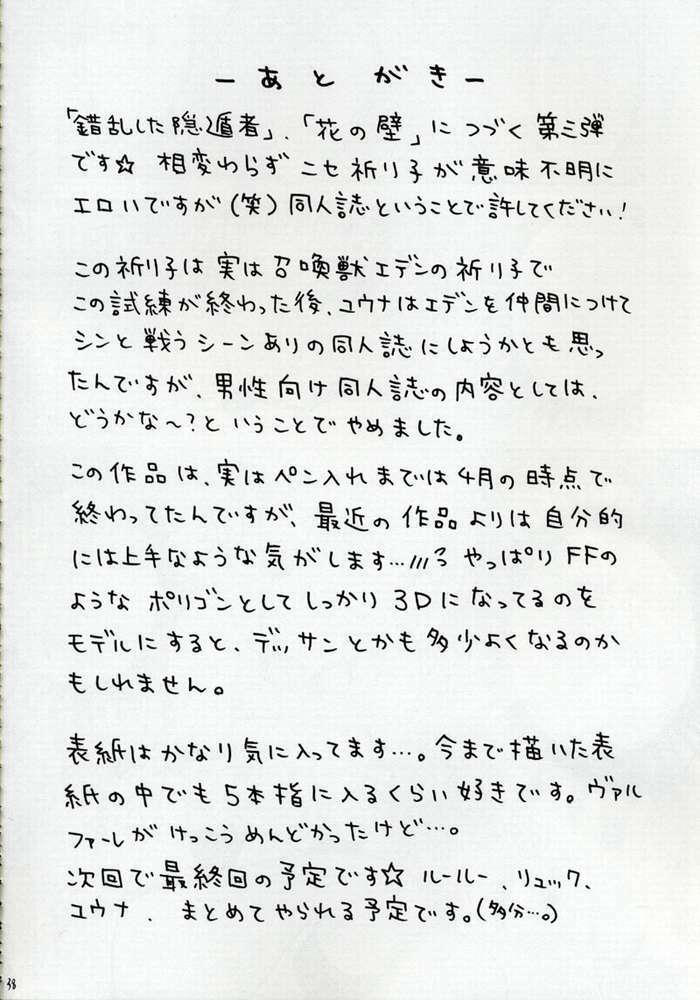 ーあとがきー
「錯乱した隠遁者」、「花の壁」につづく第三弾
です☆ 相変わらずニセ祈り子が意味不明に
エロいですが(笑)同人誌ということで許してください!
この祈り子は実は召喚獣エデンの祈り子で
この試練が終わった後、ユウナはエデンを仲間につけて
シンと戦うシーンありの同人誌にしようかとも思っ
たんですが、男性向け同人誌の内容としては、
どうかな～?ということでやめました。
この作品は、実はペン入れまでは4月の時点で
終わってたんですが、最近の作品よりは自分的
には上手なような気がします…///ろ やっぱりFFの
ようなポリゴンとしてしっかり3Dになってるのを
モデルにすると、デッサンとかも多少よくなるのか
もしれません。
表紙はかなり気に入ってます…。今まで描いた表
紙の中でも5本指に入るくらい好きです。ヴァル
ファーレがけっこうめんどかったけど…。
次回で最終回の予定です☆ ルールー、リュック、
ユウナ、まとめてやられる予定です。(多分…。)
38